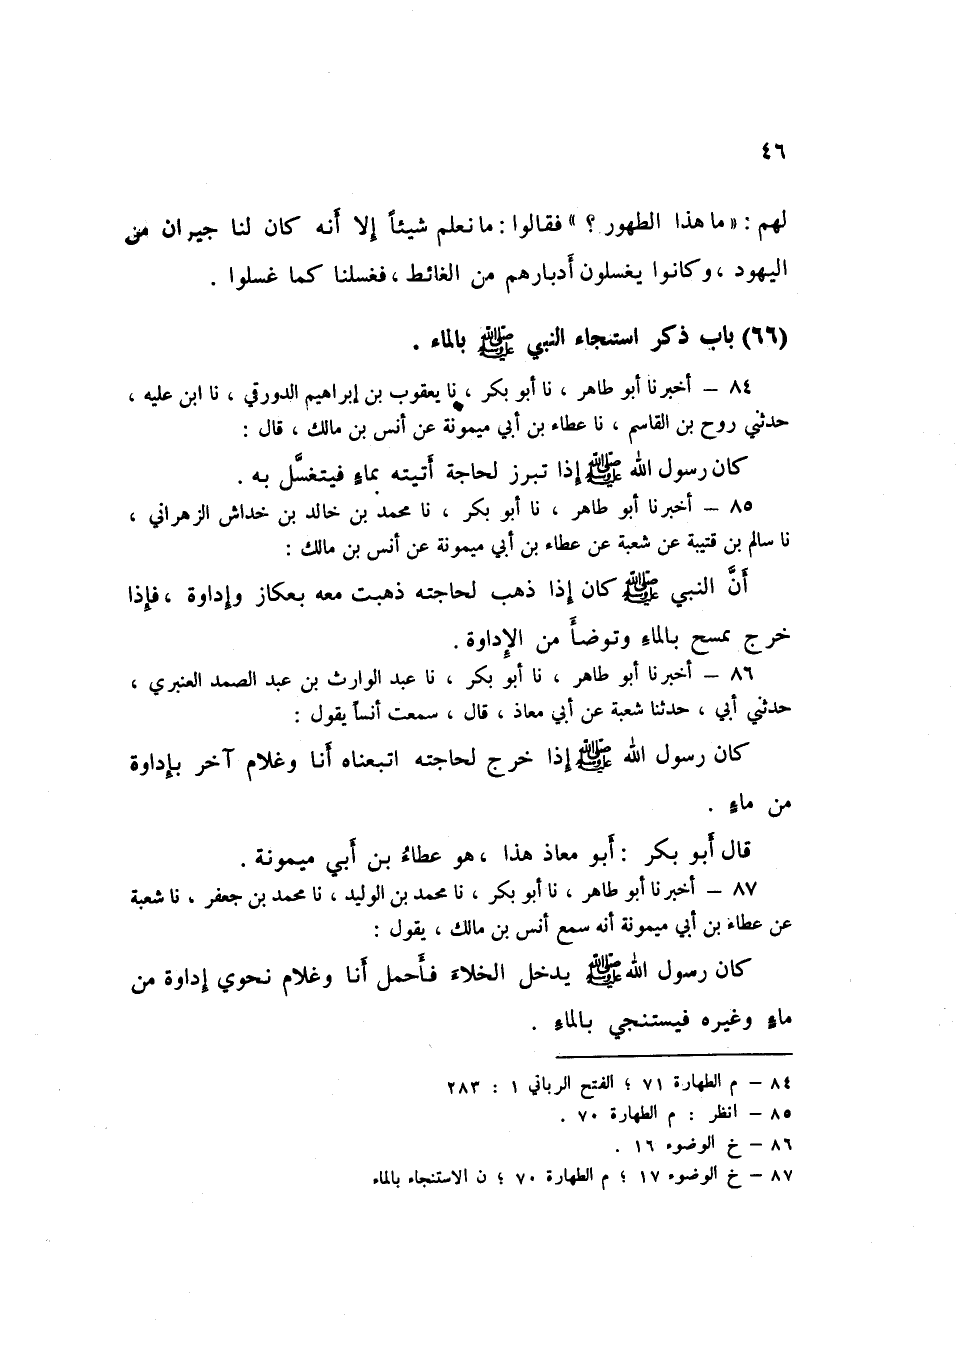 ٤٦
لهم : « ما هذا الطهور ؟ » فقالوا : ما نعلم شيئاً إلا أنه كان لنا جيران من
اليهود ، وكانوا يغسلون أدبارهم من الغائط ، فغسلنا كما غسلوا .
(٦٦) باب ذكر استنجاء النبي ﷺ بالماء .
٨٤ – أخبرنا أبو طاهر ، نا أبو بكر ، نا يعقوب بن إبراهيم الدورقي ، نا ابن عليه ،
حدثني روح بن القاسم ، نا عطاء بن أبي ميمونة عن أنس بن مالك ، قال :
كان رسول الله ﷺ إذا تبرز لحاجة أتيته بماءٍ فيتغسَّل به .
٨٥ – أخبرنا أبو طاهر ، نا أبو بكر ، نا محمد بن خالد بن خداش الزهراني ،
نا سالم بن قتيبة عن شعبة عن عطاء بن أبي ميمونة عن أنس بن مالك :
أنَّ النبي ﷺ كان إذا ذهب لحاجته ذهبت معه بعكاز وإداوة ، فإذا
خرج تمسح بالماءِ وتوضأَ من الإِداوة .
٨٦ – أخبرنا أبو طاهر ، نا أبو بكر ، نا عبد الوارث بن عبد الصمد العنبري ،
حدثني أبي ، حدثنا شعبة عن أبي معاذ ، قال ، سمعت أنساً يقول :
كان رسول الله ﷺ إذا خرج لحاجته اتبعناه أنا وغلام آخر بإداوة
من ماءٍ .
قال أبو بكر : أبو معاذ هذا ، هو عطاءُ بن أبي ميمونة .
٨٧ – أخبرنا أبو طاهر ، نا أبو بكر ، نا محمد بن الوليد ، نا محمد بن جعفر ، نا شعبة
عن عطاء بن أبي ميمونة أنه سمع أنس بن مالك ، يقول :
كان رسول الله ﷺ يدخل الخلاءَ فأحمل أنا وغلام نحوي إداوة من
ماءٍ وغيره فيستنجي بالماءِ .
٨٤ – م الطهارة ٧١ ؛ الفتح الرباني ١ : ٢٨٣
٨٥ – انظر : م الطهارة ٧٠ .
٨٦ – خ الوضوء ١٦ .
٨٧ – خ الوضوء ١٧ ؛ م الطهارة ٧٠ ؛ ن الاستنجاء بالماء